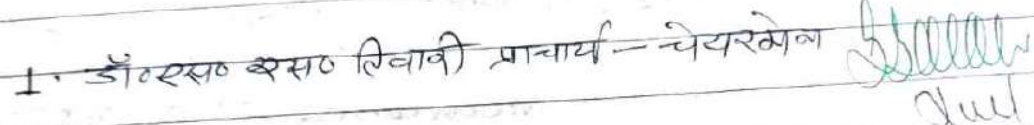 1. डॉ०एस० एस० तिवारी प्राचार्य - चेयरमेन